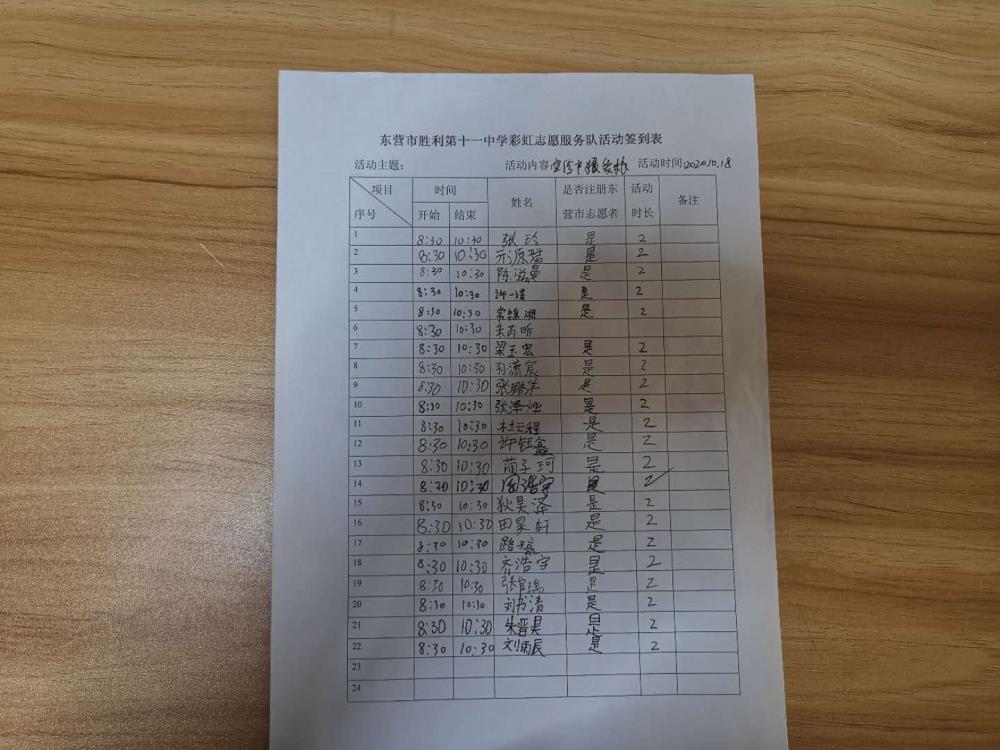 东营市胜利第十一中学彩虹志愿服务队活动签到表
活动主题: 活动内容: 活动时间:2020.10.18
项目 时间 姓名 是否注册东营市志愿者 活动时长 备注
序号 开始 结束
1 8:30 10:30 张玲 是 2
2 8:30 10:30 亓源瑞 是 2
3 8:30 10:30 陈滋曼 是 2
4 8:30 10:30 许一诺 是 2
5 8:30 10:30 常锦湘 是 2
6 8:30 10:30 朱芮昕
7 8:30 10:30 梁玉宏 是 2
8 8:30 10:30 孙潇宸 是 2
9 8:30 10:30 是 2
10 8:30 10:30 张泽 是 2
11 8:30 10:30 杜云程 是 2
12 8:30 10:30 许钰鑫 是 2
13 8:30 10:30 蔺子珂 是 2
14 8:30 10:30 周浩宇 是 2
15 8:30 10:30 狄昊泽 是 2
16 8:30 10:30 田昊轩 是 2
17 8:30 10:30 是 2
18 8:30 10:30 齐浩宇 是 2
19 8:30 10:30 是 2
20 8:30 10:30 刘书清 是 2
21 8:30 10:30 朱晋昊 是 2
22 8:30 10:30 刘炳辰 是 2
23
24